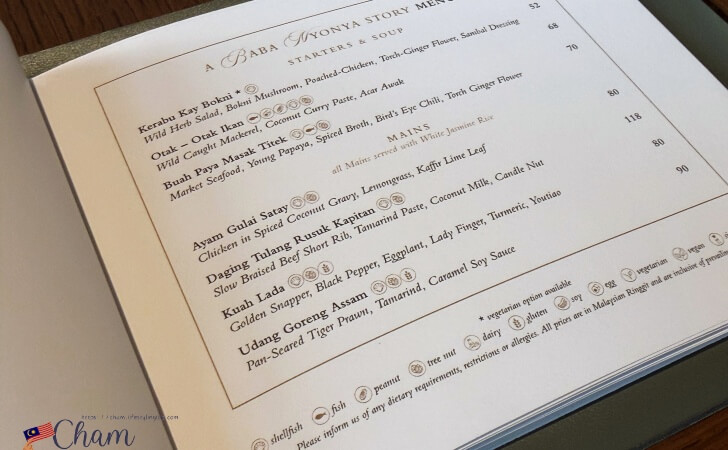 A BABA NYONYA STORY MENU
STARTERS & SOUP
Kerabu Kay Bokni * 52
Wild Herb Salad, Bokni Mushroom, Poached-Chicken, Torch-Ginger Flower, Sambal Dressing
Otak – Otak Ikan 68
Wild Caught Mackerel, Coconut Curry Paste, Acar Awak
Buah Paya Masak Titek 70
Market Seafood, Young Papaya, Spiced Broth, Bird's Eye Chili, Torch Ginger Flower
MAINS
all Mains served with White Jasmine Rice
Ayam Gulai Satay 80
Chicken in Spiced Coconut Gravy, Lemongrass, Kaffir Lime Leaf
Daging Tulang Rusuk Kapitan 118
Slow Braised Beef Short Rib, Tamarind Paste, Coconut Milk, Candle Nut
Kuah Lada 80
Golden Snapper, Black Pepper, Eggplant, Lady Finger, Turmeric, Youtiao
Udang Goreng Assam 90
Pan-Seared Tiger Prawn, Tamarind, Caramel Soy Sauce
* vegetarian option available
shellfish fish peanut tree nut dairy gluten soy egg vegetarian vegan
Please inform us of any dietary requirements, restrictions or allergies. All prices are in Malaysian Ringgit and are inclusive of
Cham